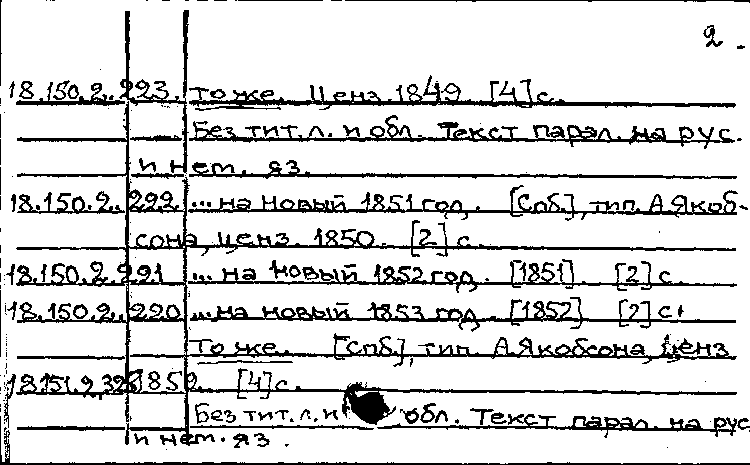 2.
18.150.2.223. То же. Ценз. 1849. [4] с.
Без тит. л. и обл. Текст парал. на рус.
и нем. яз.
18.150.2.222. ... на Новый 1851 год. [Спб], тип. А. Якоб-
сона, ценз. 1850. [2] с.
18.150.2.221 ... на новый 1852 год. [1851] [2] с.
18.150.2.220 ... на новый 1853 год. [1852] [2] с.
То же. [Спб], тип. А. Якобсона, Ценз
18.151.2.328 1852. [4] с.
Без тит. л. и обл. Текст парал. на рус
и нем. яз.